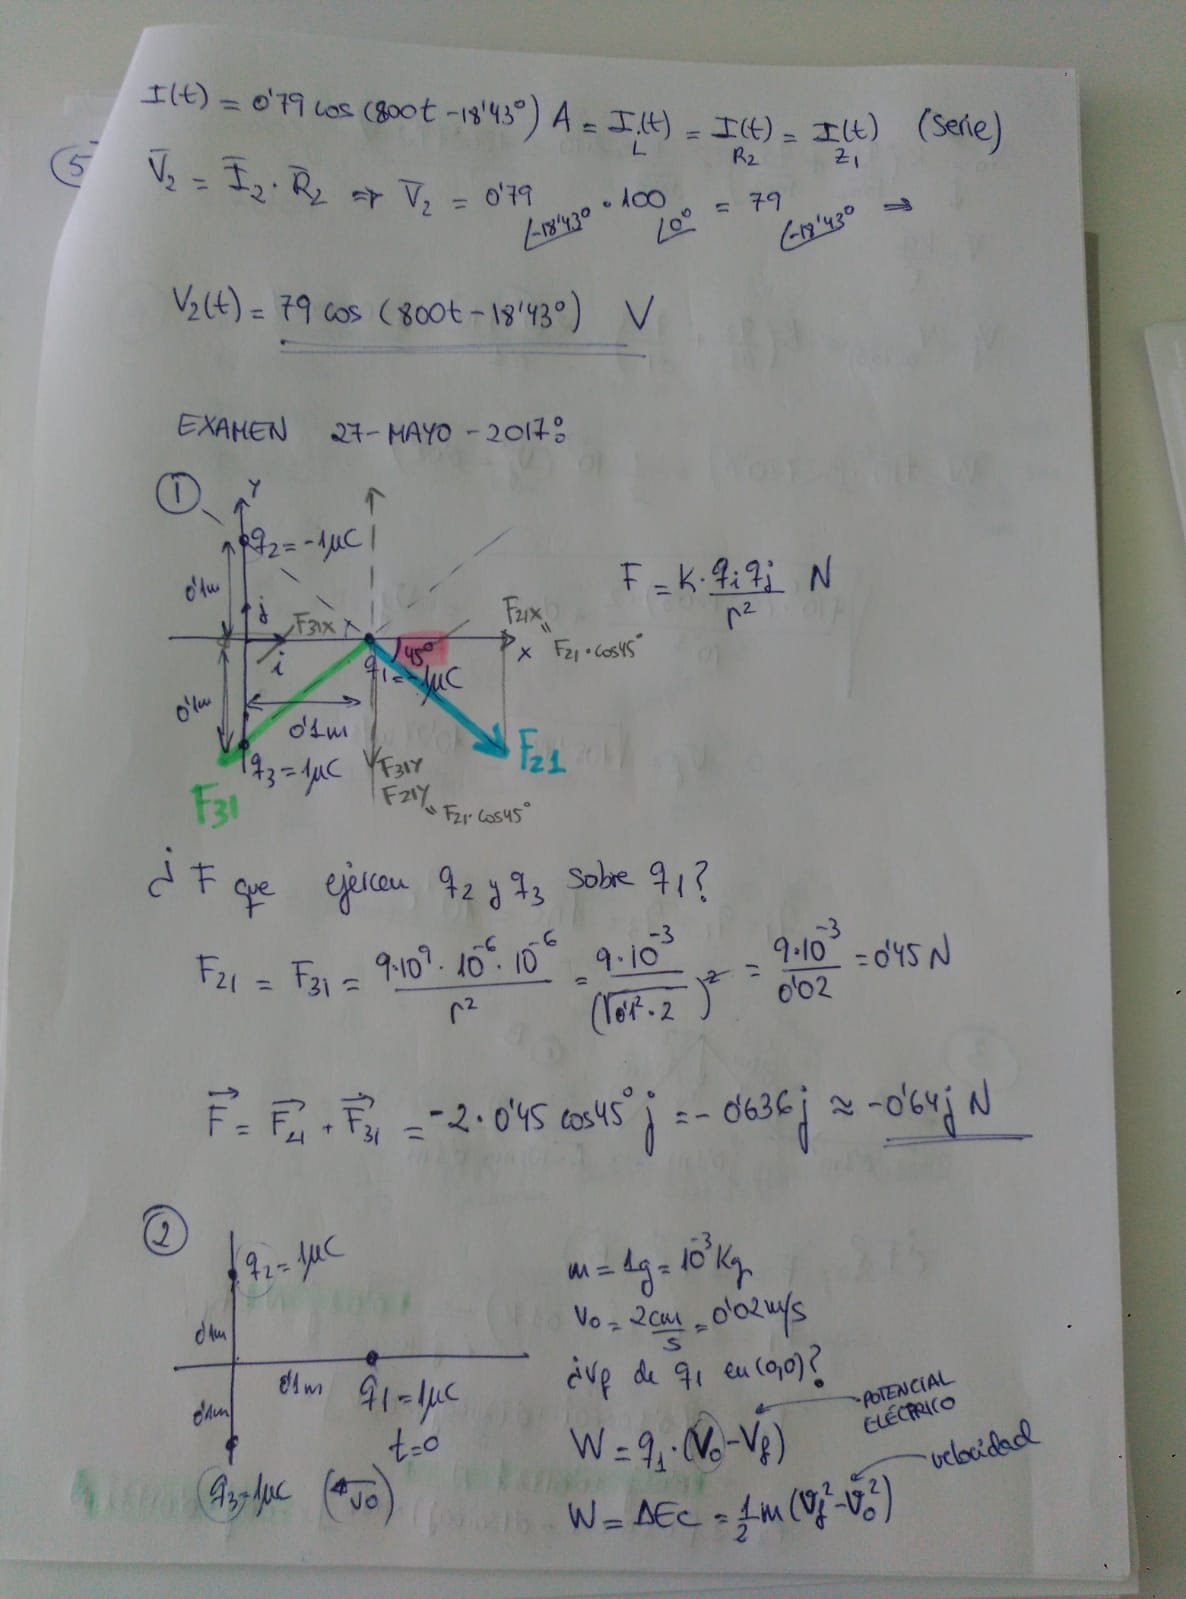 I(t) = 0'79 cos (800t -18'43°) A = I_L(t) = I_R2(t) = I_Z1(t) (serie)
5
V̄2 = Ī2 · R̄2 ⇒ V̄2 = 0'79 ∠-18'43° · 100 ∠0° = 79 ∠-18'43° ⇒
V2(t) = 79 cos (800t - 18'43°) V
EXAMEN 27-MAYO-2017:
1
Y
q2 = -1μC
0'1m
j
F31x
F21x
"
F21·cos45°
x
i
45°
q1 = -1μC
0'1m
0'1m
q3 = 1μC
F31
F21
F31Y
F21Y
" F21·cos45°
F = K · qi qj / r² N
¿F que ejercen q2 y q3 sobre q1?
F21 = F31 = 9·10⁹ · 10⁻⁶ · 10⁻⁶ / r² = 9·10⁻³ / (√0'1²·2)² = 9·10⁻³ / 0'02 = 0'45 N
F⃗ = F⃗21 + F⃗31 = -2 · 0'45 cos45° j = -0'636 j ≈ -0'64 j N
2
q2 = 1μC
0'1m
0'1m
0'1m
q1 = 1μC
t=0
q3 = 1μC (←v0)
m = 1g = 10⁻³ Kg
v0 = 2 cm/s = 0'02 m/s
¿vf de q1 en (0,0)?
POTENCIAL
ELÉCTRICO
W = q1 · (V0 - Vf)
velocidad
W = ΔEc = 1/2 m (vf² - v0²)